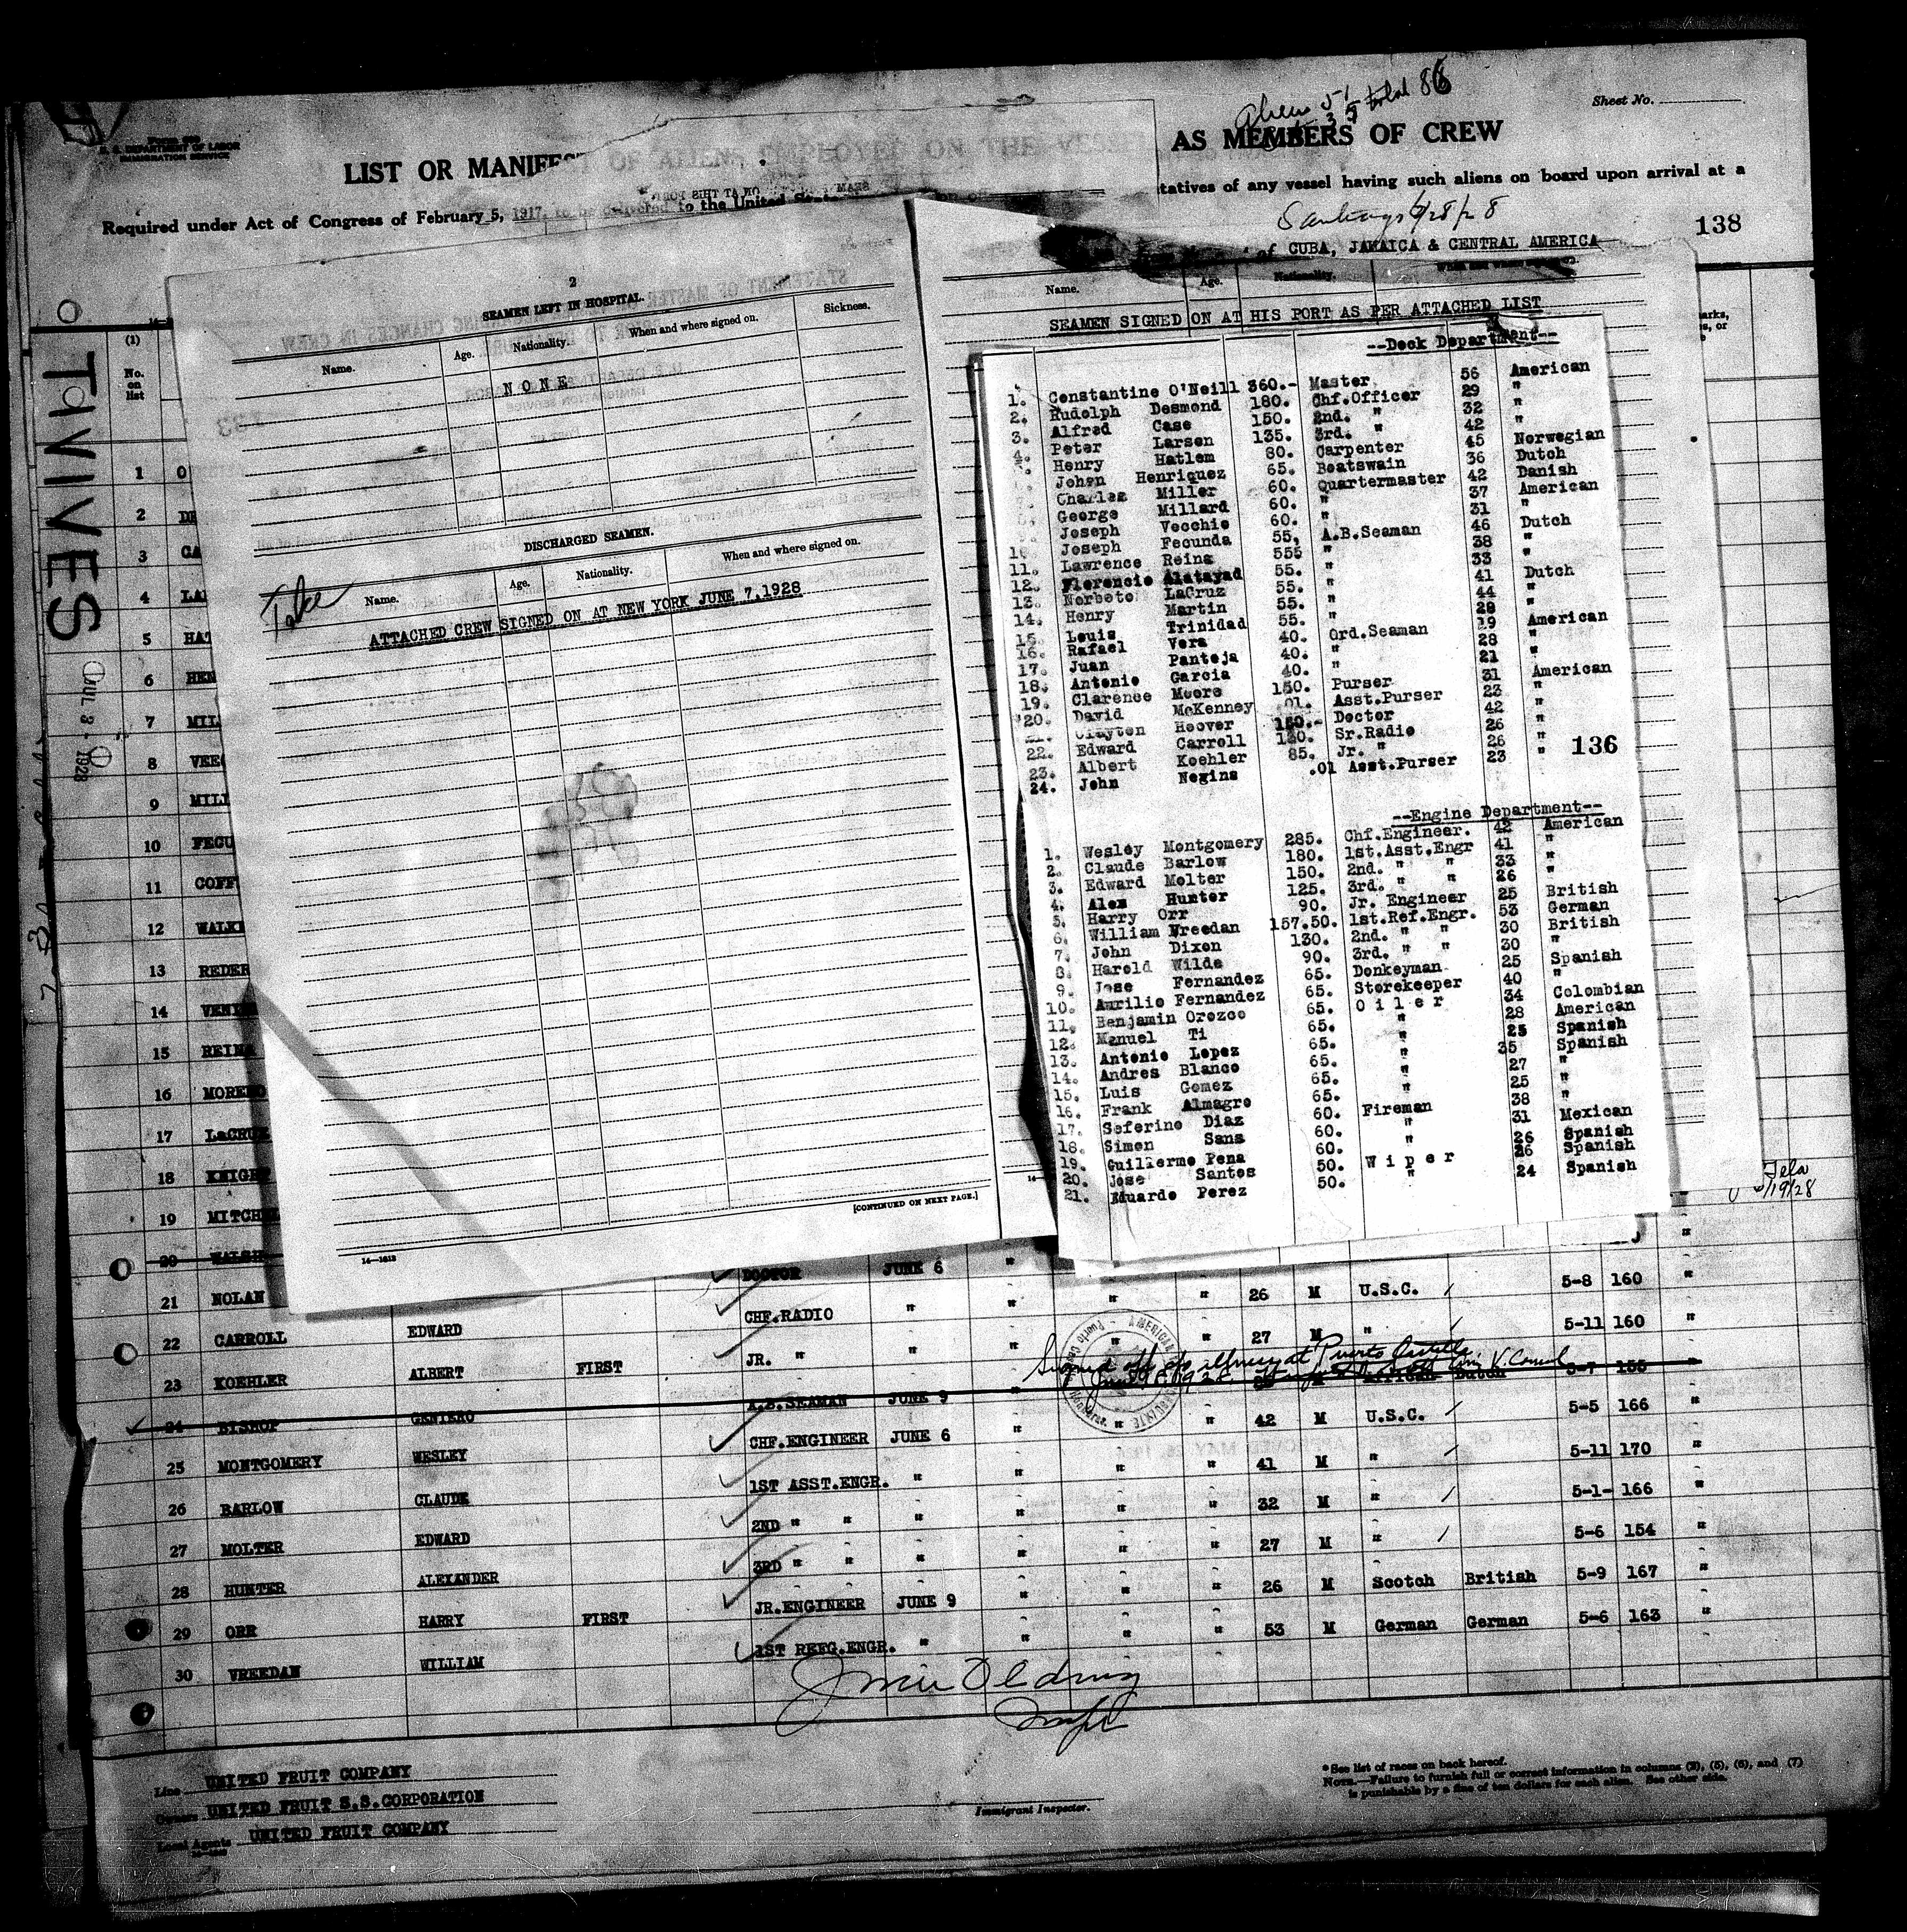 Sheet No.
U. S. DEPARTMENT OF LABOR
IMMIGRATION SERVICE
total 86
LIST OR MANIFEST OF ALIENS EMPLOYED ON THE VESSEL AS MEMBERS OF CREW
Required under Act of Congress of February 5, 1917, to be delivered to the United States
tatives of any vessel having such aliens on board upon arrival at a
138
of CUBA, JAMAICA & CENTRAL AMERICA
TIVIVES
(1)
No. on list
2
SEAMEN LEFT IN HOSPITAL.
Name. Age. Nationality. When and where signed on. Sickness.
NONE
DISCHARGED SEAMEN.
Name. Age. Nationality. When and where signed on.
ATTACHED CREW SIGNED ON AT NEW YORK JUNE 7,1928
[CONTINUED ON NEXT PAGE.]
14—1613
Name. Age. Nationality.
SEAMEN SIGNED ON AT HIS PORT AS PER ATTACHED LIST
--Deck Department--
1. Constantine O'Neill 360.- Master 56 American
2. Rudolph Desmond 180. Chf.Officer 29 "
3. Alfred Case 150. 2nd. " 32 "
4. Peter Larsen 135. 3rd. " 42 "
Henry Hatlem 80. Carpenter 45 Norwegian
Johan Henriquez 65. Boatswain 36 Dutch
Charles Miller 60. Quartermaster 42 Danish
George Millard 60. " 37 American
Joseph Vecchio 60. " 31 "
10. Joseph Fecunda 55, A.B.Seaman 46 Dutch
11. Lawrence Reina 555 " 38 "
12. Florencio Alatayad 55. " 33 "
13. Norbeto LaCruz 55. " 41 Dutch
14. Henry Martin 55. " 44 "
15. Louis Trinidad 55. " 28 "
16. Rafael Vera 40. Ord.Seaman 19 American
17. Juan Panteja 40. " 28 "
18. Antonio Garcia 40. " 21 "
19. Clarence Moore 150. Purser 31 American
20. David McKenney .01. Asst.Purser 23 "
21. Clayton Hoover 150.- Doctor 42 "
22. Edward Carroll 130. Sr.Radio 26 "
23. Albert Koehler 85. Jr. " 26 "
24. John Negins .01 Asst.Purser 23 "
136
--Engine Department--
1. Wesley Montgomery 285. Chf.Engineer. 42 American
2. Claude Barlow 180. 1st.Asst.Engr 41 "
3. Edward Molter 150. 2nd. " " 33 "
4. Alex Hunter 125. 3rd. " " 26 "
5. Harry Orr 90. Jr. Engineer 25 British
6. William Vreedan 157.50. 1st.Ref.Engr. 53 German
7. John Dixon 130. 2nd. " " 30 British
8. Harold Wilde 90. 3rd. " " 30 "
9. Jose Fernandez 65. Donkeyman 25 Spanish
10. Aurilio Fernandez 65. Storekeeper 40 "
11. Benjamin Orozco 65. Oiler 34 Colombian
12. Manuel Ti 65. " 28 American
13. Antonio Lopez 65. " 25 Spanish
14. Andres Blanco 65. " 35 Spanish
15. Luis Gomez 65. " 27 "
16. Frank Almagro 65. " 25 "
17. Seferino Diaz 60. Fireman 38 "
18. Simon Sans 60. " 31 Mexican
19. Guillermo Pena 60. " 26 Spanish
20. Jose Santos 50. Wiper 26 Spanish
21. Eduardo Perez 50. " 24 Spanish
Tela
1 O
2 DE
3 CA
4 LA
5 HAT
6 HEN
7 MIL
8 VEC
9 MILL
10 FECU
11 COFF
12 WALK
13 REDER
14 VEN
15 REINA
16 MORENO
17 LaCRUZ
18 KNIGHT
19 MITCH
20 WALSH
21 NOLAN DOCTOR JUNE 6 "
22 CARROLL EDWARD CHF.RADIO " " " " 26 M U.S.C. 5-8 160 "
23 KOEHLER ALBERT FIRST JR. " " " " 27 M " 5-11 160 "
Signed off at Puerto Castilla
24 BISHOP GENIERO A.B.SEAMAN JUNE 9 " African Dutch 5-7 155 "
25 MONTGOMERY WESLEY CHF.ENGINEER JUNE 6 " " " 42 M U.S.C. 5-5 166 "
26 BARLOW CLAUDE 1ST ASST.ENGR. " " " " 41 M " 5-11 170 "
27 MOLTER EDWARD 2ND " " " " " " 32 M " 5-1- 166 "
28 HUNTER ALEXANDER 3RD " " " " " " 27 M " 5-6 154 "
29 ORR HARRY FIRST JR.ENGINEER JUNE 9 " " " 26 M Scotch British 5-9 167 "
30 VREEDAN WILLIAM 1ST REFG.ENGR. " " " " 53 M German German 5-6 163 "
Line UNITED FRUIT COMPANY
Owners UNITED FRUIT S.S.CORPORATION
Local Agents UNITED FRUIT COMPANY
Immigrant Inspector.
*See list of races on back hereof.
NOTE.—Failure to furnish full or correct information in columns (3), (5), (6), and (7)
is punishable by a fine of ten dollars for each alien. See other side.